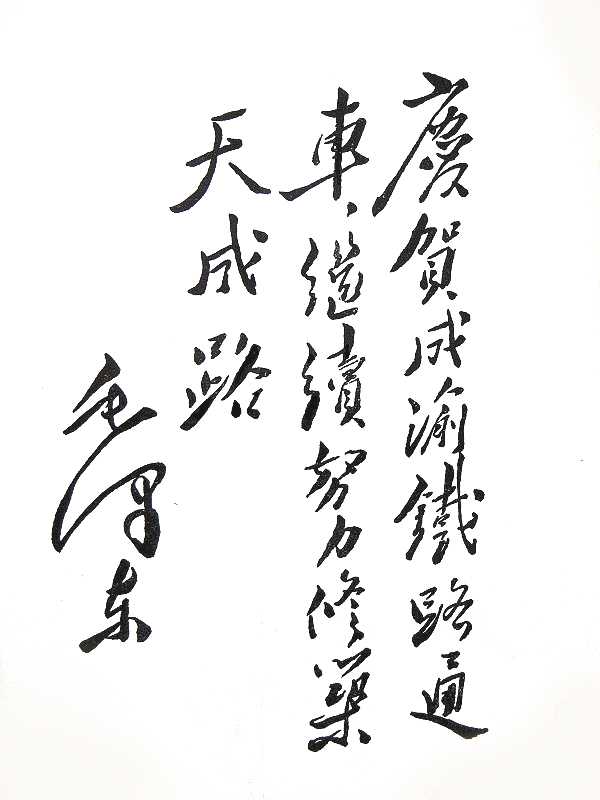 慶賀成渝鐵路通
車、繼續努力修築
天成路
毛澤东